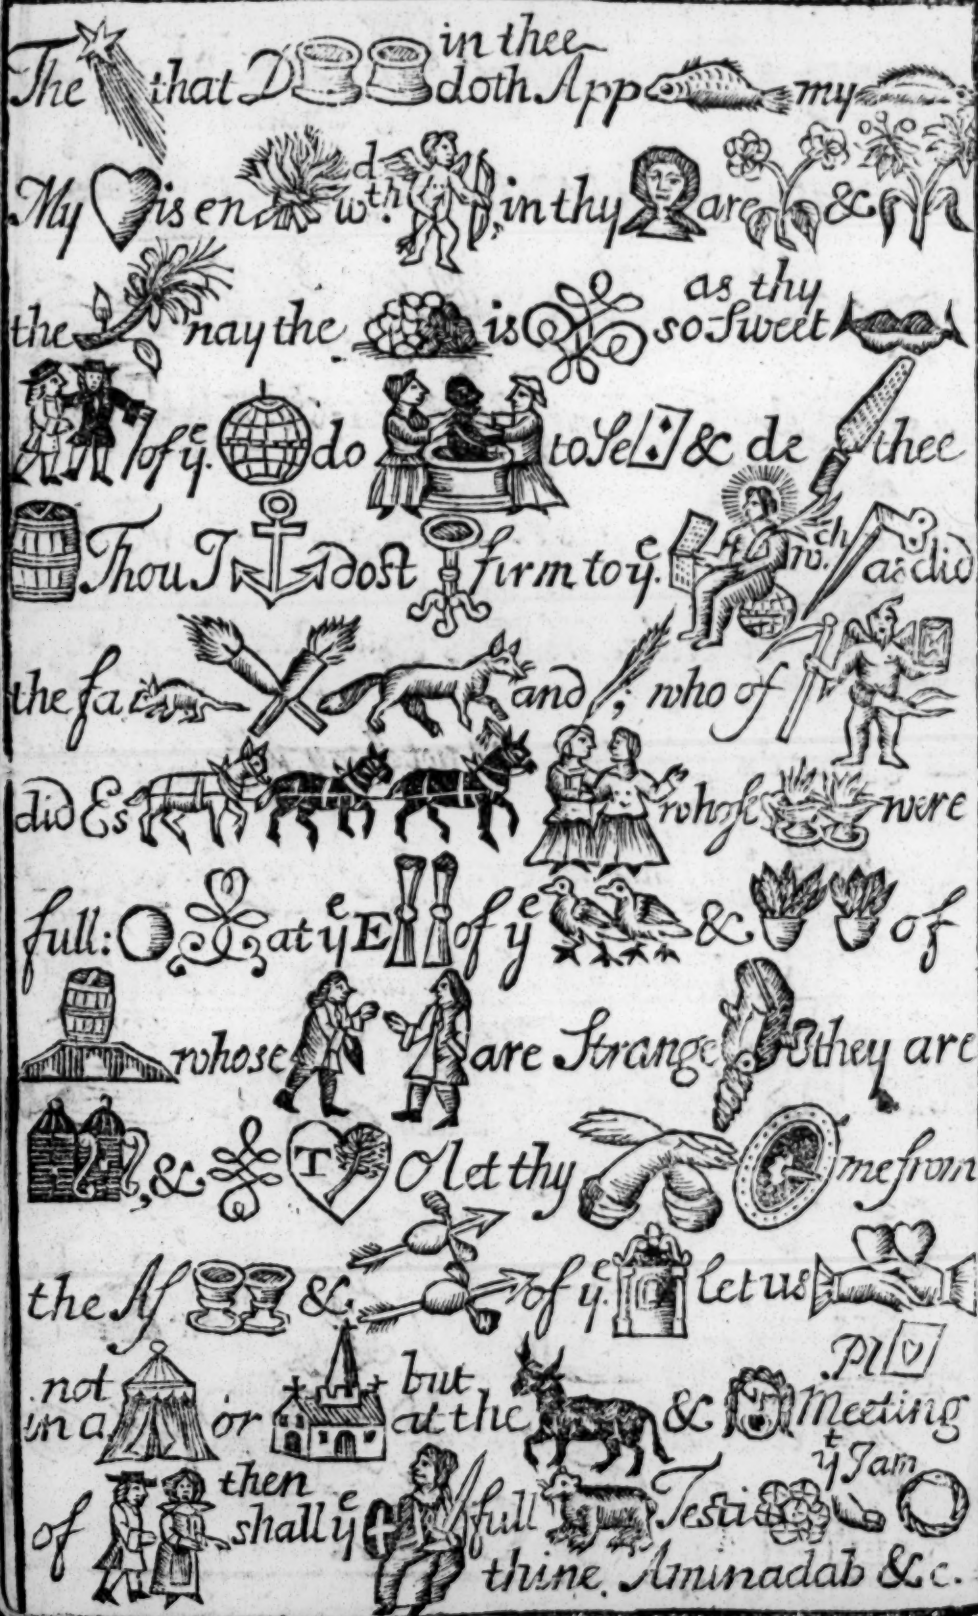 in thee
The that D doth App my
My is en wth d in thy are &
the nay the is so Sweet as thy
of ye. do to Se & de thee
Thou I dost firm to ye. wch as did
the fa and ; who of
did Es whose were
full: at ye E of ye & of
whose are Strange they are
, & T O let thy me from
the As & of ye. let us
not in a or but at the & Pl Meeting
of then shall ye full Testi yt I am
thine. Aminadab &c.